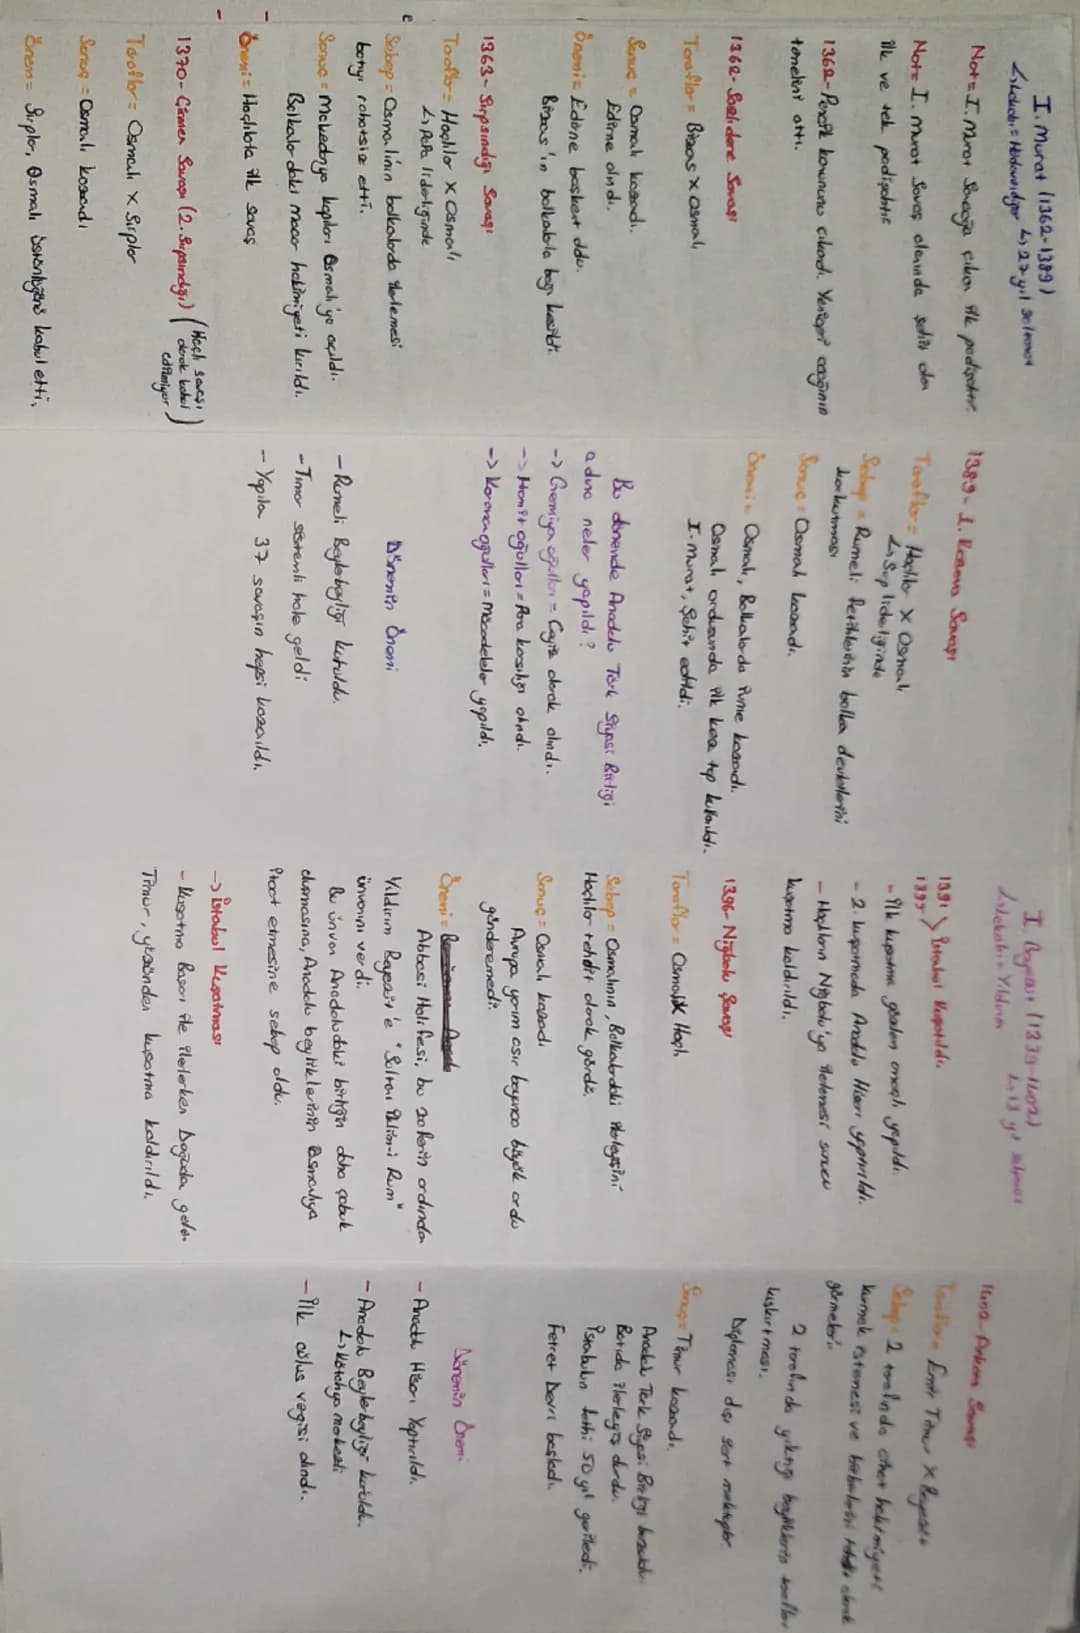 I. Murat (1362-1389)
↳ Lakabı = Hüdavendigar ↳ 27 yıl saltanat
Not = I. Murat Savaşa çıkan ilk padişahtır.
Not = I. Murat Savaş alanında şehit olan
ilk ve tek padişahtır
1362 - Pençik kanununu çıkardı. Yeniçeri ocağının
temelini attı.
1362 - Sazlıdere Savaşı
Taraflar = Bizans X Osmalı
Sonuç = Osmalı kazandı.
Edirne alındı.
Önemi = Edirne başkent oldu.
Bizans'ın balkalarla bağı kesildi.
1363 - Sırpsındığı Savaşı
Taraflar = Haçlılar X Osmalı
↳ Papa liderliğinde
Sebep = Osmalinin balkalarda ilerlemesi
batıyı rahatsız etti.
Sonuç = Makedonya kapıları Osmalı'ya açıldı.
Balkalardaki macar hakimiyeti kırıldı.
Önemi = Haçlılarla ilk savaş
1370 - Çirmen Savaşı (2. Sırpsındığı) (Haçlı savaşı
olarak kabul
edilmiyor)
Taraflar = Osmalı X Sırplar
Sonuç = Osmalı kazandı
Önem = Sırplar, Osmalı üstünlüğünü kabul etti.
1389 - 1. Kosova Savaşı
Taraflar = Haçlılar X Osmalı
↳ Sırp liderliğinde
Sebep = Rumeli fetihlerinin balka devletlerini
korkutması
Sonuç = Osmalı kazandı.
Önemi = Osmalı, Balkalarda ivme kazandı.
Osmalı ordusunda ilk kez top kullaıldı.
I. Murat, Şehit edildi.
Bu dönemde Anadolu Türk Siyasi Birliği
adına neler yapıldı?
-> Germiyaoğulları = Çeyiz olarak alındı.
-> Hamitoğulları = Para karşılığı alındı.
-> Karamaoğulları = Mücadeleler yapıldı.
Dönemin Önemi
- Rumeli Beylerbeyliği kuruldu.
- Tımar sistemli hale geldi
- Yapıla 37 savaşın hepsi kazaıldı.
I Bayezit (1389-1402)
↳ Lakabı = Yıldırım ↳ 13 yıl saltanat
1391
1395 > İstabul Kuşatıldı.
- İlk kuşatma gözlem amaçlı yapıldı.
- 2. kuşatmada Anadolu Hisarı yaptırıldı.
- Haçlıların Niğbolu'ya ilerlemesi sonucu
kuşatma kaldırıldı.
1396 - Niğbolu Savaşı
Taraflar = Osmalı X Haçlı
Sebep = Osmalının, Balkalardaki ilerleyişini
Haçlılar tehdit olarak gördü.
Sonuç = Osmalı kazandı
Avrupa yarım asır boyunca büyük ordu
gönderemedi.
Önemi =
Abbasi Halifesi, bu zaferin ardından
Yıldırım Bayezit'e "Sultanı İklimi Rum"
ünvanını verdi.
Bu ünvan Anadoludaki birliğin daha çabuk
oluşmasına, Anadolu beyliklerinin Osmalıya
itaat etmesine sebep oldu.
-> İstabul Kuşatması
- Kuşatma Başarı ile ilerlerken Doğuda gelen
Timur, yüzünden kuşatma kaldırıldı.
1402 - Ankara Savaşı
Taraflar = Emir Timur X Bayezit
Sebep = 2 tarafında cihan hakimiyeti
kurmak istemesi ve birbirlerini tehdit olarak
görmeleri
2 tarafında yıktığı beyliklerin tarafları
kışkırtması.
Diplomasi dışı sert mektuplar.
Sonuç = Timur kazandı.
Anadolu Türk Siyasi Birliği bozuldu.
Batıda ilerleyiş durdu.
İstabulun fethi 50 yıl geriledi.
Fetret Devri başladı.
Dönemin Önemi
- Anadolu Hisarı Yaptırıldı.
- Anadolu Beylerbeyliği kuruldu.
↳ Kütahya merkezli
- İlk cülus vergisi alındı.